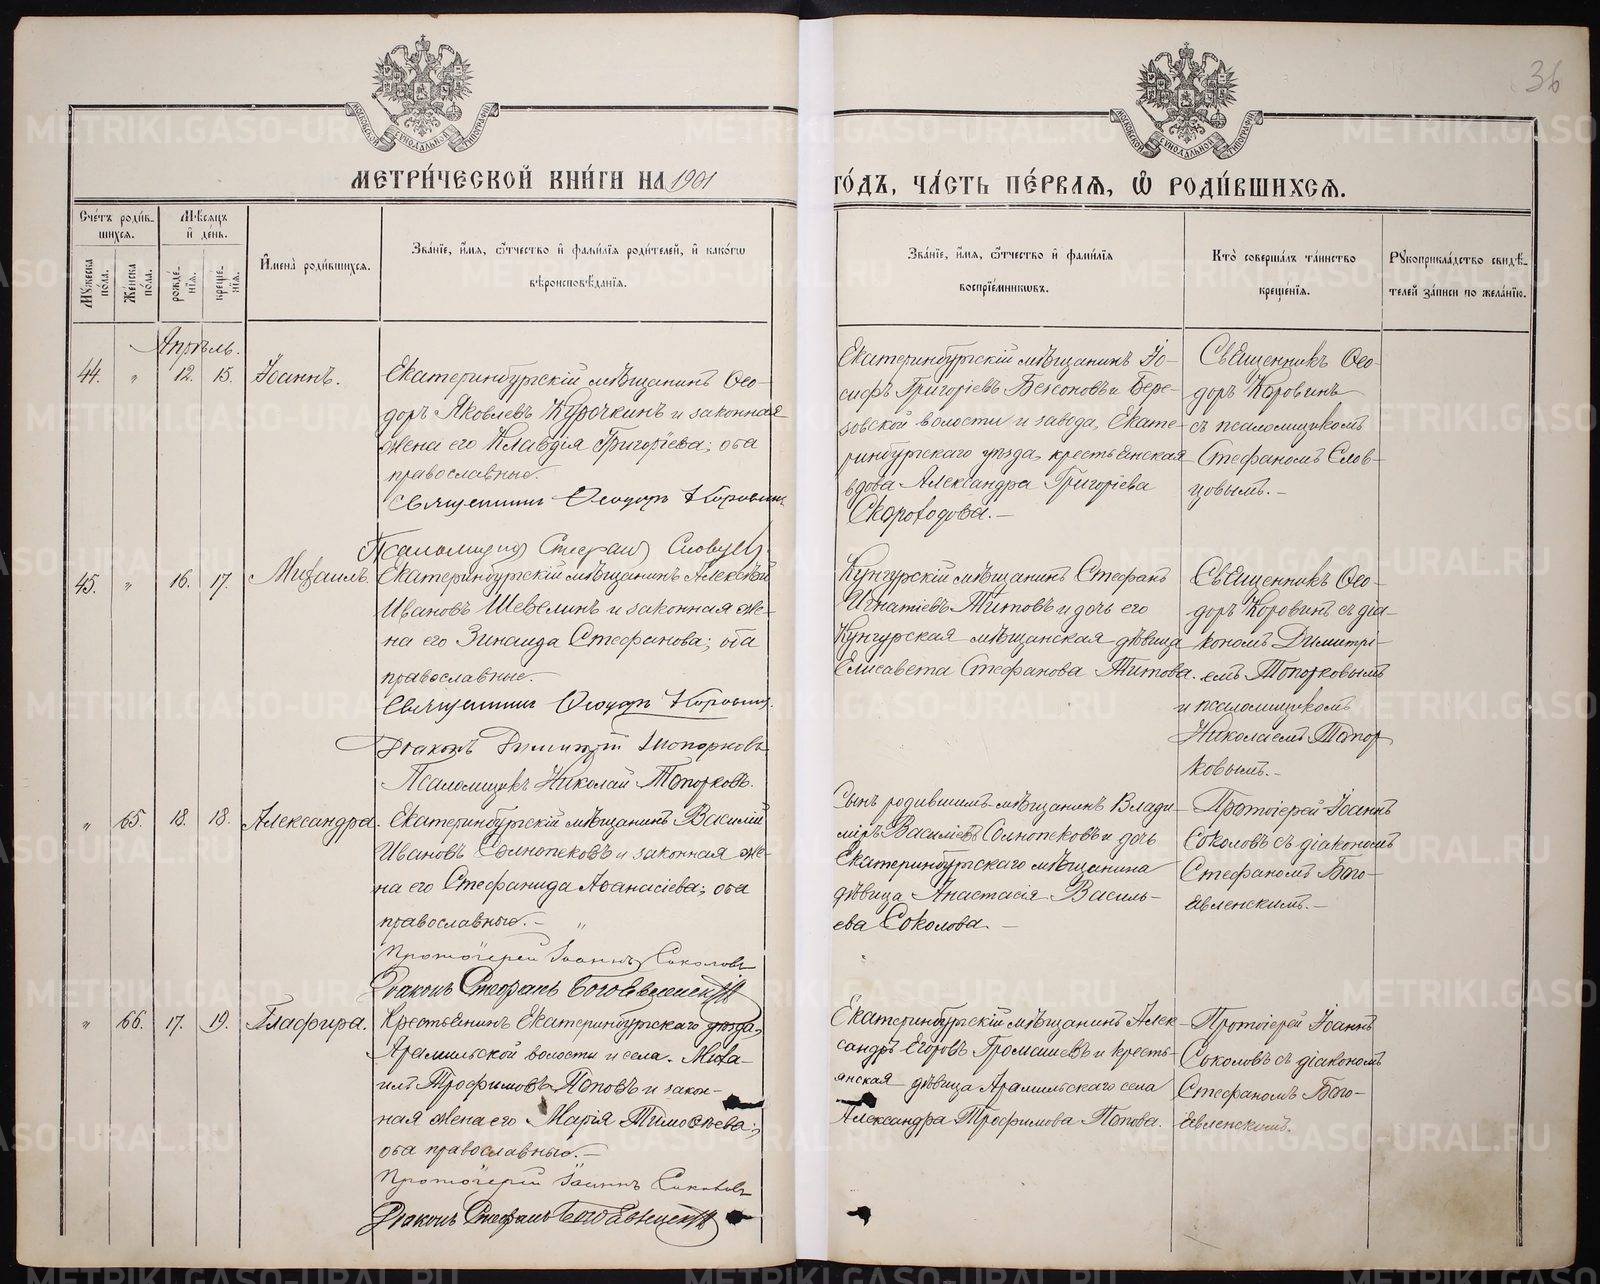 36
МОСКОВСКОЙ СѴНОДАЛЬНОЙ ТИПОГРАФІИ
МОСКОВСКОЙ СѴНОДАЛЬНОЙ ТИПОГРАФІИ
МЕТРИ́ЧЕСКОЙ КНИ́ГИ НА 1901
ГО́ДЪ, ЧА́СТЬ ПЕ́РВАЯ, Ѡ҆ РОДИ́ВШИХСЯ.
Сче́тъ роди́в-
шихся.
Мѣ́сяцъ
и҆ де́нь.
Мꙋ́жеска по́ла.
Же́нска по́ла.
рожде́-
нїѧ.
креще́-
нїѧ.
И҆мена̀ роди́вшихся.
Зва́нїе, и҆́мя, ѻ҆́тчество и҆ фами́лїя роди́телей, и҆ како́гѡ
вѣроисповѣ́данїя.
Зва́нїе, и҆́мя, ѻ҆́тчество и҆ фами́лїя
воспрїе́мникѡвъ.
Кто̀ соверша́лъ та́инство
креще́нїя.
Рꙋкоприкла́дство свидѣ́-
телей за́писи по жела́нїю.
Апрѣль.
44. " 12. 15. Іоаннъ.
Екатеринбургскій мѣщанинъ Ѳео-
доръ Яковлевъ Курочкинъ и законная
жена его Клавдія Григоріева; оба
православные.
Священникъ Ѳеодоръ Коровинъ
Псаломщикъ Стефанъ Словцовъ
Екатеринбургскій мѣщанинъ Іо-
сифъ Григоріевъ Белсоновъ и Бере-
зовской волости и завода, Екате-
ринбургскаго уѣзда, крестьянская
вдова Александра Григоріева
Скороходова.—
Священникъ Ѳео-
доръ Коровинъ
съ псаломщикомъ
Стефаномъ Слов-
цовымъ.—
45. " 16. 17. Михаилъ.
Екатеринбургскій мѣщанинъ Алексѣй
Ивановъ Шевелинъ и законная же-
на его Зинаида Стефанова; оба
православные.
Священникъ Ѳеодоръ Коровинъ.
Діаконъ Димитрій Топорковъ
Псаломщикъ Николай Топорковъ.
Кунгурскій мѣщанинъ Стефанъ
Игнатіевъ Титовъ и дочь его
Кунгурская мѣщанская дѣвица
Елисавета Стефанова Титова.
Священникъ Ѳео-
доръ Коровинъ съ діа-
кономъ Димитрі-
емъ Топорковымъ
и псаломщикомъ
Николаемъ Топор
ковымъ.—
" 65. 18. 18. Александра.
Екатеринбургскій мѣщанинъ Василій
Ивановъ Солнопековъ и законная же-
на его Стефанида Аѳанасіева; оба
православные.—
Протоіерей Іоаннъ Соколовъ
Діаконъ Стефанъ Богоявленскій
Сынъ родившимъ мѣщанинъ Влади-
міръ Василіевъ Солнопековъ и дочь
Екатеринбургскаго мѣщанина
дѣвица Анастасія Василь-
ева Соколова.—
Протоіерей Іоаннъ
Соколовъ съ діакономъ
Стефаномъ Бого-
явленскимъ.—
" 66. 17. 19. Глафира.
Крестьянинъ Екатеринбургскаго уѣзда,
Арамильской волости и села. Миха-
илъ Трофимовъ Поповъ и закон-
ная жена его Марія Тимоѳеева;
оба православные.—
Протоіерей Іоаннъ Соколовъ
Діаконъ Стефанъ Богоявленскій
Екатеринбургскій мѣщанинъ Алек-
сандръ Егоровъ Громышевъ и кресть-
янская дѣвица Арамильскаго села
Александра Трофимова Попова.
Протоіерей Іоаннъ
Соколовъ съ діакономъ
Стефаномъ Бого-
явленскимъ.